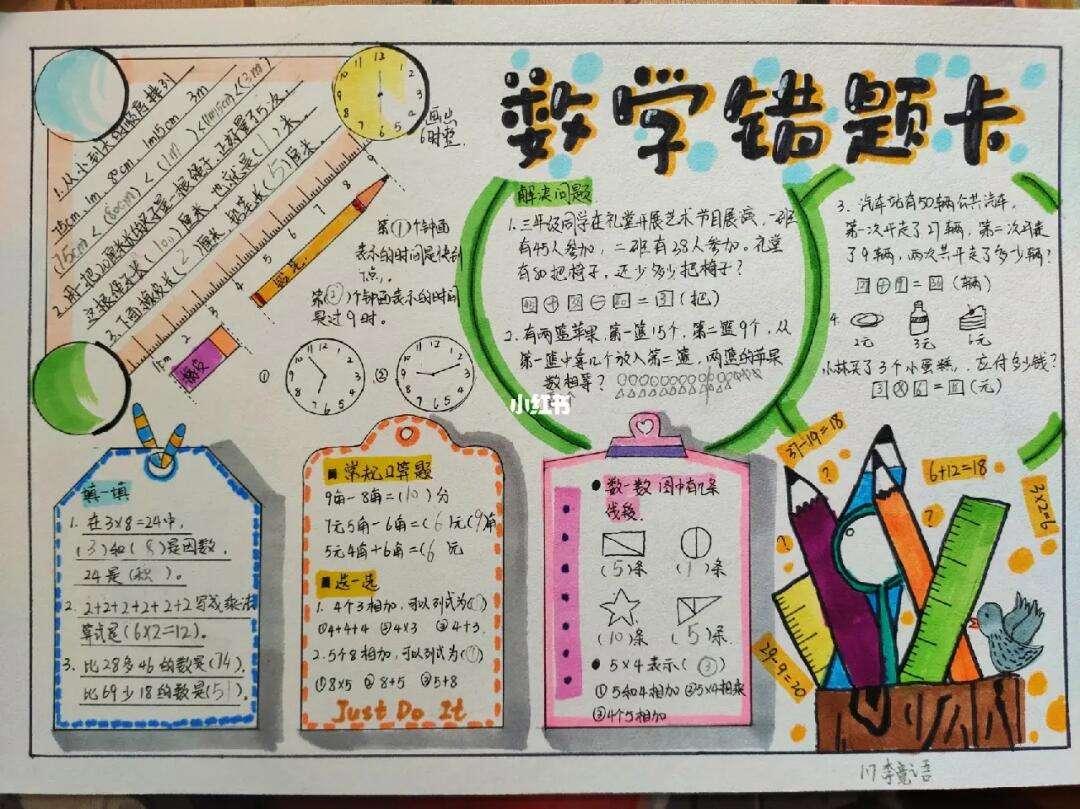 数学错题卡
1.从小到大的顺序排列
75cm、1m、80cm、1m15cm、3m
(75cm) < (80cm) < (1m) < (1m15cm) < (3m)
画出
6时整.
第(1)个钟面
表示的时间是快到
7点,.
第(2)个钟面表示的时间
是过9时.
①
②
铅笔
橡皮
解决问题
1.三年级同学在礼堂开展艺术节目展演,一班
有45人参加,二班有38人参加。礼堂
有80把椅子,还少多少把椅子?
2.有两篮苹果 第一篮15个,第二篮9个,从
第一篮中拿几个放入第二篮,两篮的苹果
数相等?
3.汽车站有50辆公共汽车,
第一次开走了27辆,第二次开走
了9辆,两次共开走了多少辆?
4.
2元 3元 6元
小林买了3个小蛋糕,应付多少钱?
3×6=(元)
小红书
填一填
1.在3×8=24中,
(3)和(8)是因数,
24是(积)。
2.2+2+2+2+2+2写成乘法
算式是(6×2=12)。
3.比28多46的数是(74),
比69少18的数是(51)。
常规口算题
9角-8角=(10)分
7元5角-6角=(6)元(9)角
5元4角+6角=(6 元
选一选
1.4个3相加,可以列式为(①)
①4+4+4 ②4×3 ③4+3
2.5个8相加,可以列式为(①)
①8×5 ②8+5 ③5+8
Just Do It
数一数 图中有几条
线段.
(5)条 (1)条
(10)条 (5)条
5×4表示(③)
①5和4相加②5×4相乘
③4个5相加
37-19=18
6+12=18
3×2=6
29-9=20
17李竟语